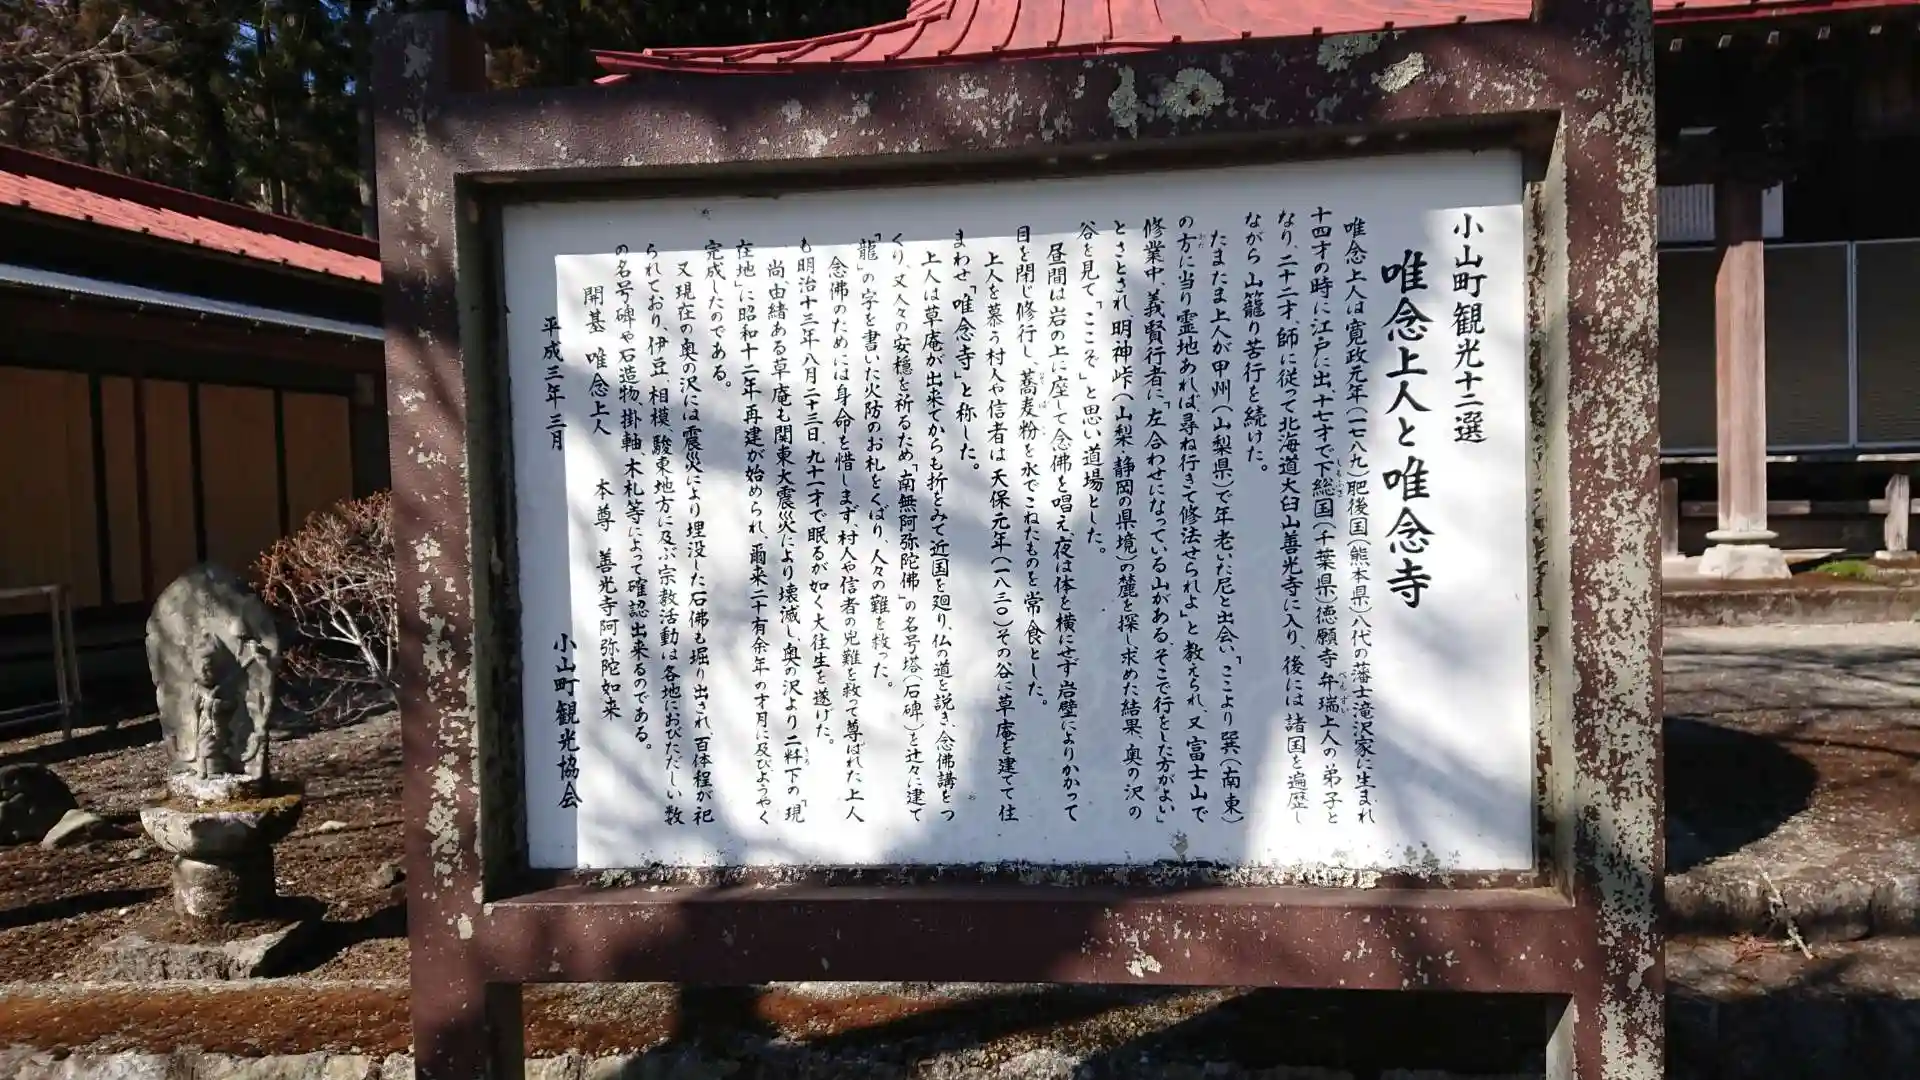 小山町観光十二選
唯念上人と唯念寺
唯念上人は寛政元年(一七八九)肥後国(熊本県)八代の藩士滝沢家に生まれ
十四才の時に江戸に出、十七才で下総国(千葉県)徳願寺弁瑞上人の弟子と
なり、二十二才、師に従って北海道大臼山善光寺に入り、後には諸国を遍歴し
ながら山籠り苦行を続けた。
たまたま上人が甲州(山梨県)で年老いた尼と出会い、「ここより巽(南東)
の方に当り霊地あれば、尋ね行きて修法せられよ」と教えられ、又、富士山で
修業中、義賢行者に「左合わせになっている山がある。そこで行をした方がよい」
とさとされ、明神峠(山梨・静岡の県境)の麓を探し求めた結果、奥の沢の
谷を見て、「ここぞ」と思い道場とした。
昼間は岩の上に座して念佛を唱え、夜は体を横にせず岩壁によりかかって
目を閉じ修行し、蕎麦粉を水でこねたものを常食とした。
上人を慕う村人や信者は天保元年(一八三〇)その谷に草庵を建てて住
まわせ「唯念寺」と称した。
上人は草庵が出来てからも折をみて近国を廻り、仏の道を説き、念佛講をつ
くり、又人々の安穏を祈るため「南無阿弥陀佛」の名号塔(石碑)を辻々に建て
「龍」の字を書いた火防のお札をくばり、人々の難を救った。
念佛のためには身命を惜しまず、村人や信者の危難を救って尊ばれた上人
も明治十三年八月二十三日、九十一才で眠るが如く大往生を遂げた。
尚、由緒ある草庵も関東大震災により壊滅し、奥の沢より二粁下の「現
在地」に昭和十二年再建が始められ、爾来二十有余年の才月に及びようやく
完成したのである。
又現在の奥の沢には震災により埋没した石佛も堀り出され、百体程が祀
られており、伊豆、相模、駿東地方に及ぶ宗教活動は各地におびただしい数
の名号碑や石造物、掛軸、木札等によって確認出来るのである。
開基 唯念上人 本尊 善光寺阿弥陀如来
平成三年三月 小山町観光協会